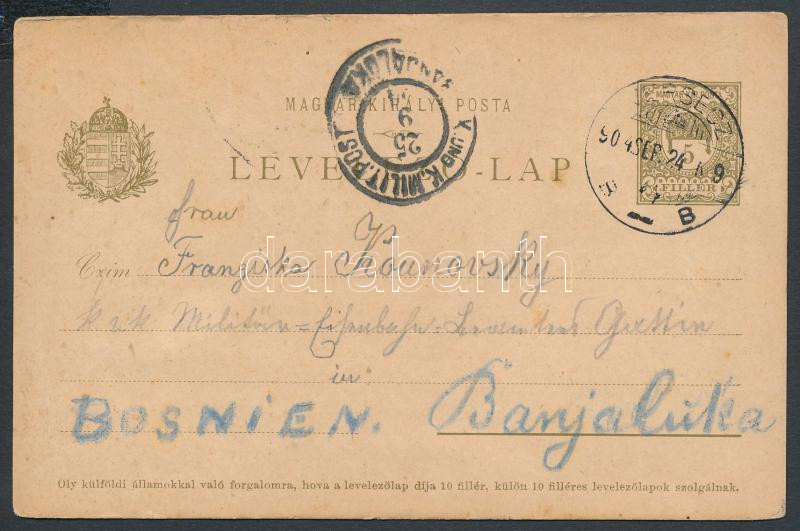 MAGYAR KIRÁLYI POSTA
LEVELEZŐ-LAP
MAGYAR KIR. POSTA
5
FILLÉR
904 SEP. 24
B
K. UND K. MILIT. POST
BANJALUKA
25
9
Frau
Czim Franziska
k u k Militär=Eisenbahn-Beamtens Gattin
in
BOSNIEN. Banjaluka
darabanth
Oly külföldi államokkal való forgalomra, hova a levelezőlap díja 10 fillér, külön 10 filléres levelezőlapok szolgálnak.